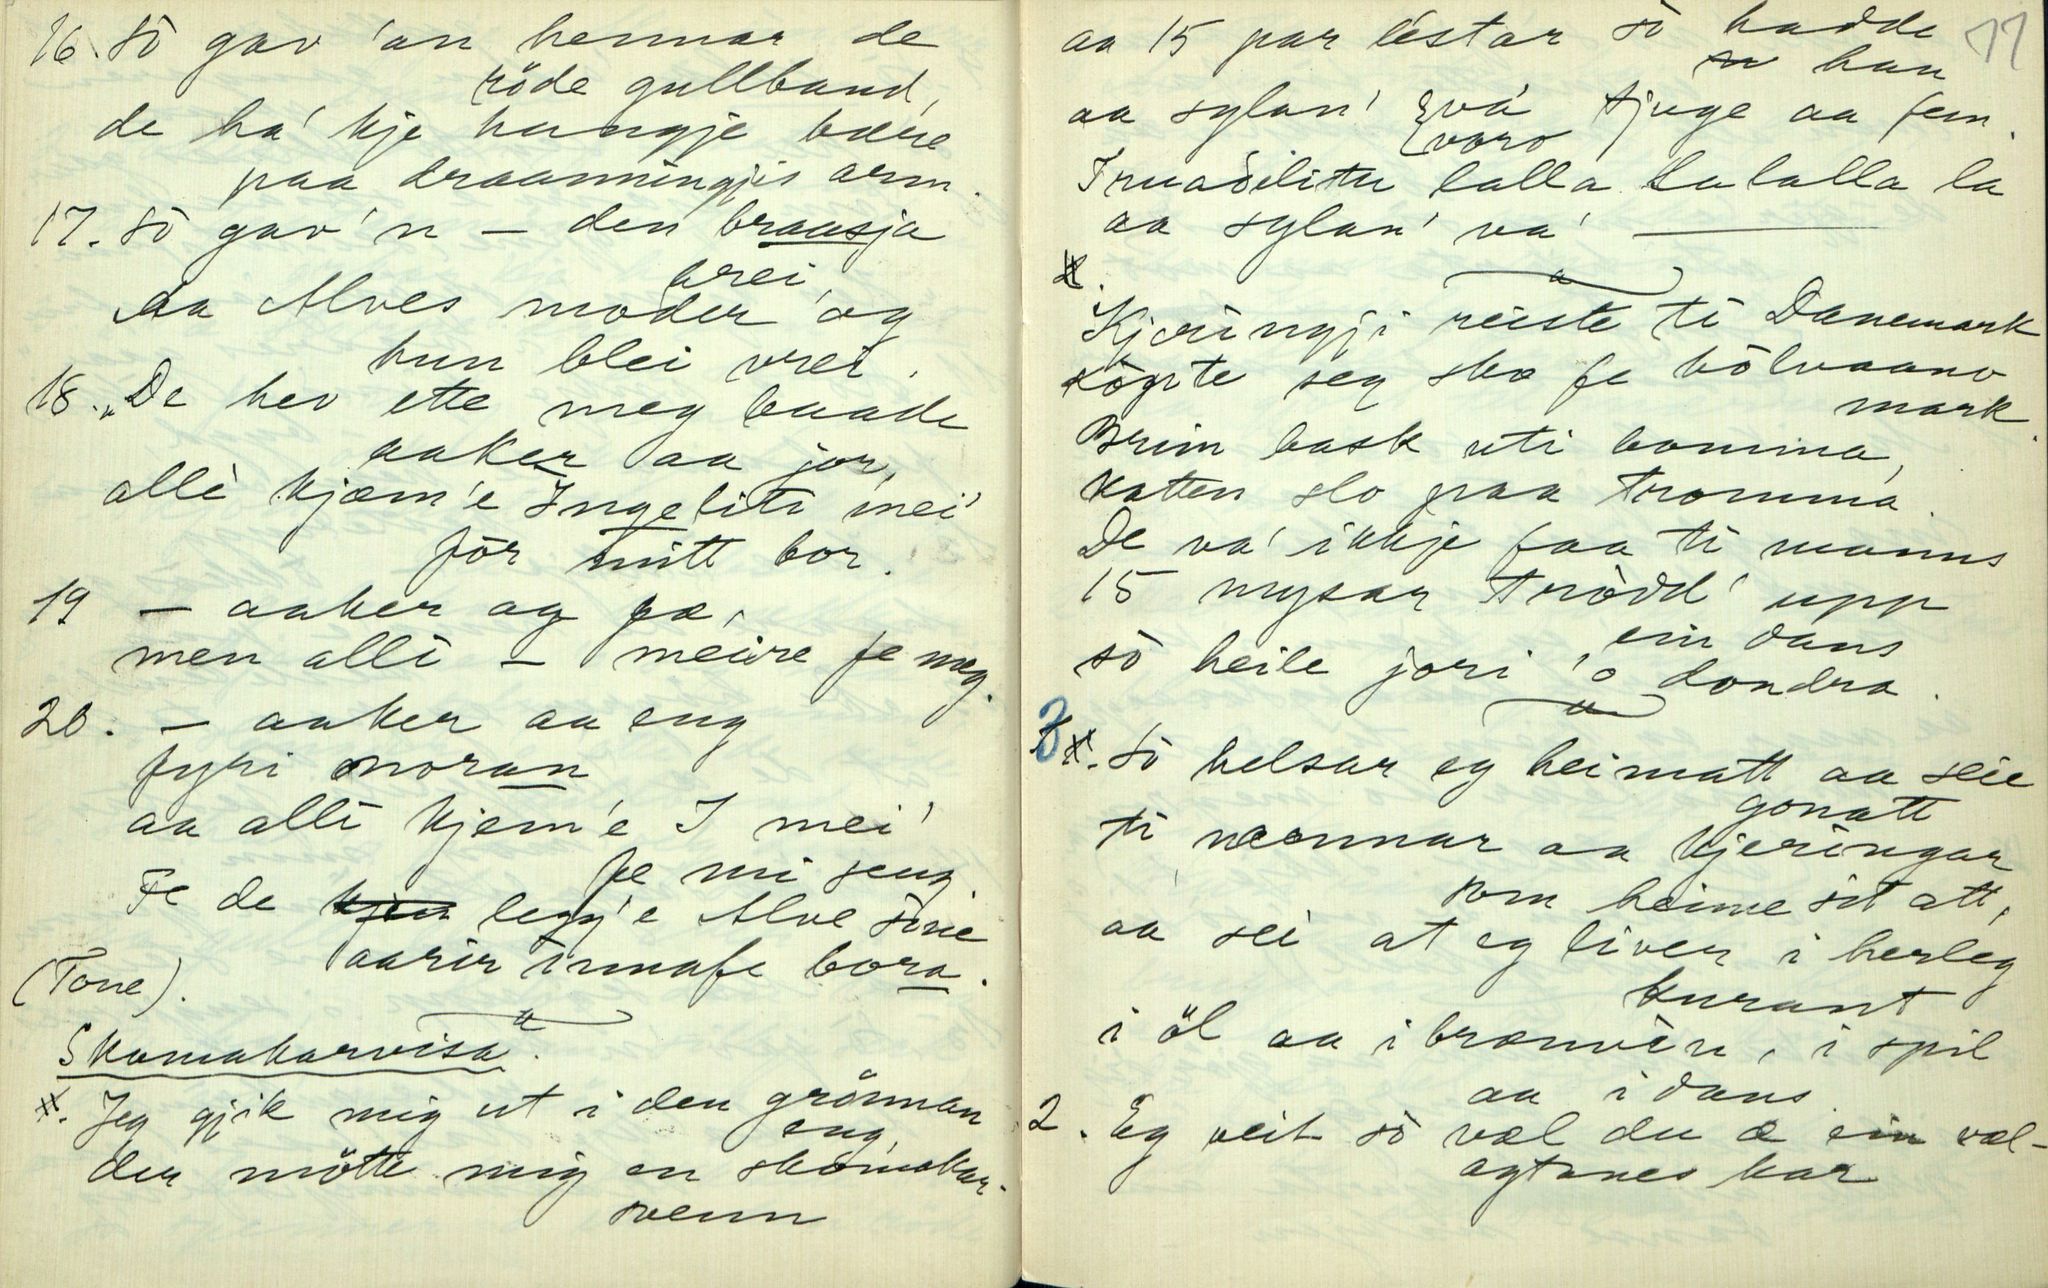 16. Sò gav 'an hennar de
röde gullband,
de ha' kje hangje bære
paa draanningjis arm.
17. Sò gav 'n – den braasja
brei,
aa Alves moder og
hun blei vrei.
18. „De hev ette meg baade
aaker aa jor,
allè kjæm'e Ingeliti mei'
för mitt bor.
19 – aaker og fæ,
men allì – meire fe meg.
20. – aaker aa eng
fyri noran
aa allì kjem'e I mei'
fe mi seng.
Fe de legg'e Alve sine
aarir innafe bora.
(Tone).
Skomakarvisa.
Jeg gjik mig ut i den grönnan
eng,
der mötte mig en skomakar-
svenn
77
aa 15 par lestar sò hadde
han
aa sylan' va' tjuge aa fem.
voro
Truadilitu lalla lalalla la
aa sylan' va' —
Kjæringji reiste ti Danemark
kögte seg sko fe hölvaano
mark.
Brim bask uti bomma,
katten slo paa tromma.
De va' ikkje faa ti manns
15 mysar trödd' upp
ein dans
sò heile jori 'o dondra.
3
Sò helsar eg heimatt aa seie
gonatt
ti mannar aa kjeringar
som heime sit att,
aa sei at eg liver i herleg
kurant
i öl aa i brennvin, i spil
aa i dans.
2. Eg veit sò væl du æ ein væl-
agtanes kar